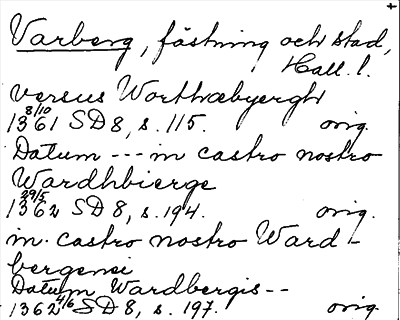 Varberg, fästning och stad,
Hall. l.
versus Worthæbyerghr
1361 8/10 SD 8, s. 115. orig.
Datum --- in castro nostro
Wardhbierge
1362 29/5 SD 8, s. 194. orig.
in castro nostro Ward-
bergensi
Datum Wardbergis--
1362 4/6 SD 8, s. 197. orig.